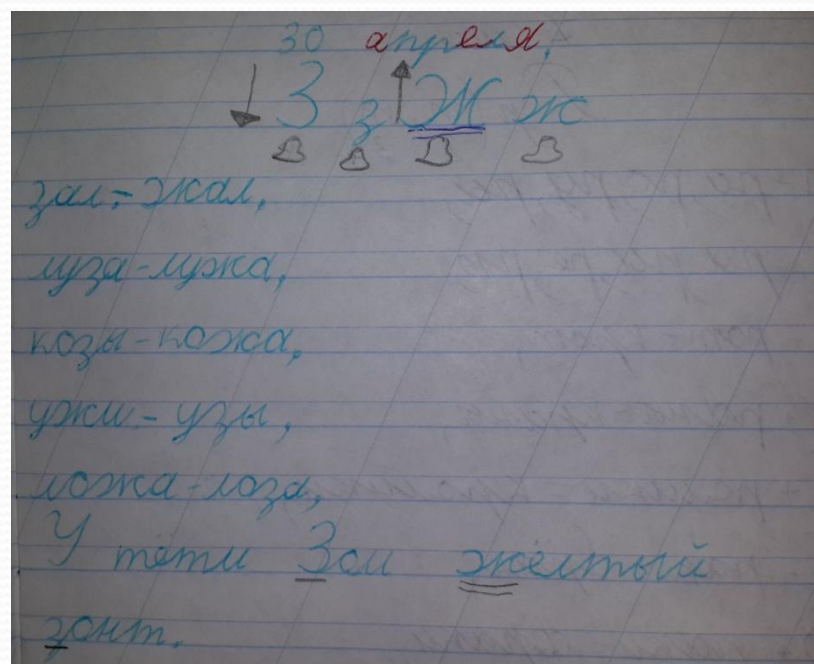 30 апреля.
З з Ж ж
зал - жал,
луза - лужа,
козы - кожа,
ужи - узы,
ложа - лоза,
У тёти Зои жёлтый
зонт.